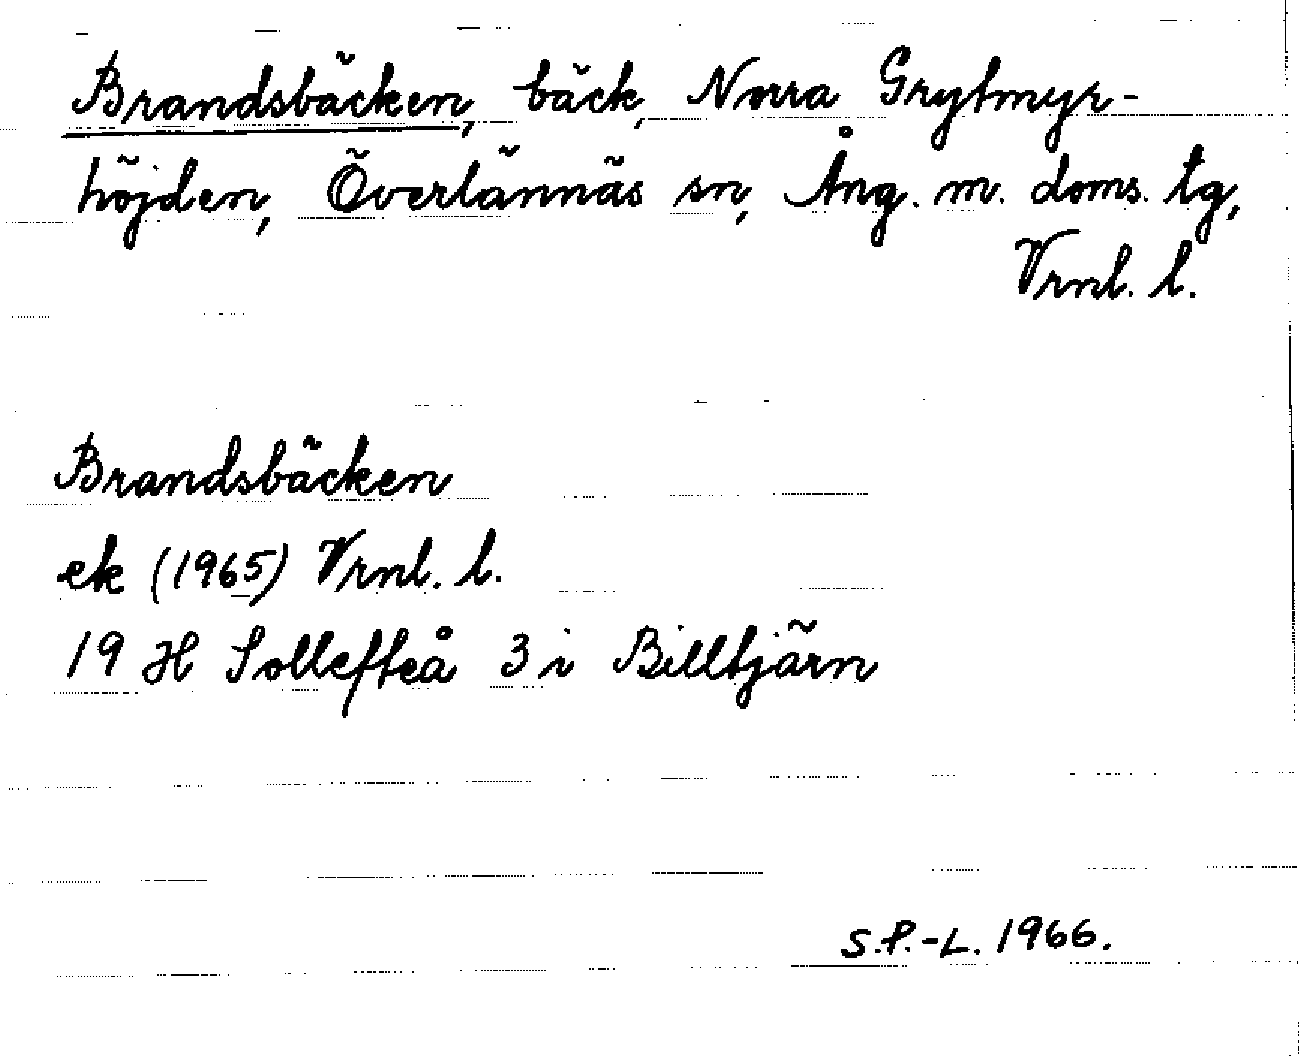 Brandsbäcken, bäck, Norra Grytmyr-
höjden, Överlännäs sn, Ång. m. doms. tg,
Vrnl. l.
Brandsbäcken
ek (1965) Vrnl. l.
19 H Sollefteå 3 i Billtjärn
S.P.-L. 1966.